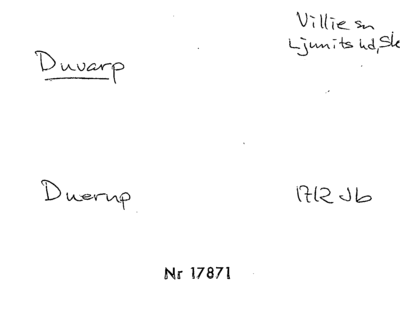 Villie sn
Duvarp Ljunits hd, Sk
Duerup 1712 Jb
Nr 17871